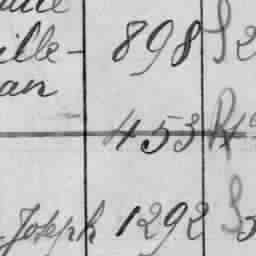 ille- 898 S2
an
453 R
Joseph 1292 S